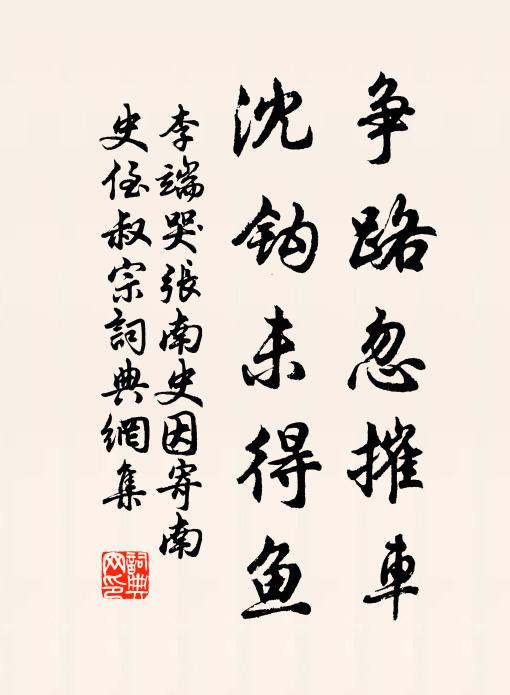 争路忽摧車
沈鈎未得鱼
李端哭張南史因寄南
史侄叔宗詞典網集
詞典
网印